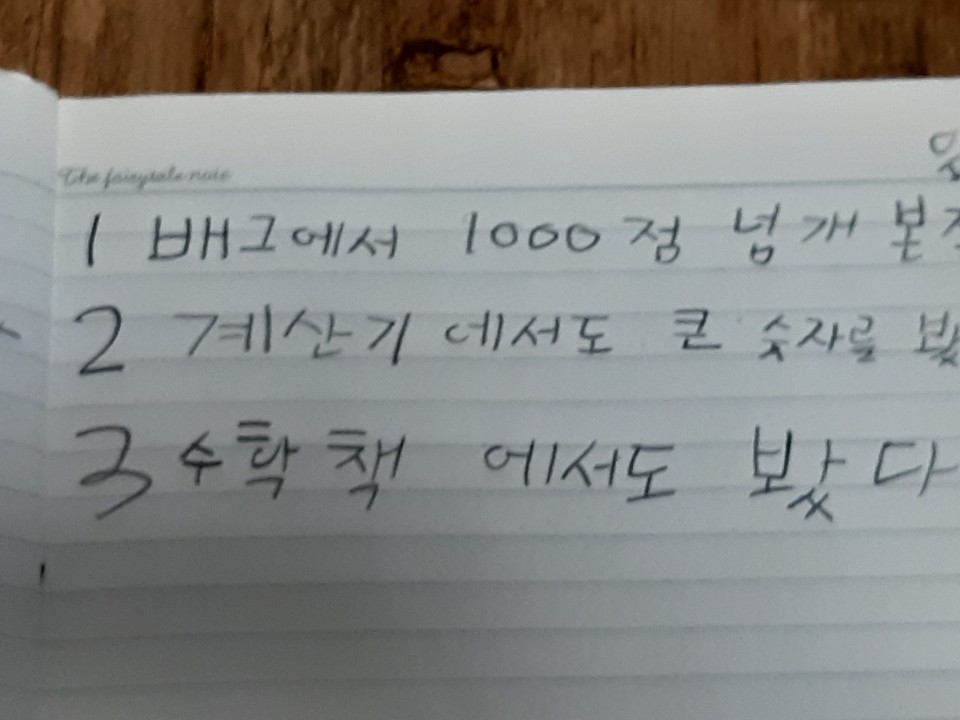 The fairytale note
1 배그에서 1000점 넘개 본
2 계산기에서도 큰 숫자를
3 수학책 에서도 봤다